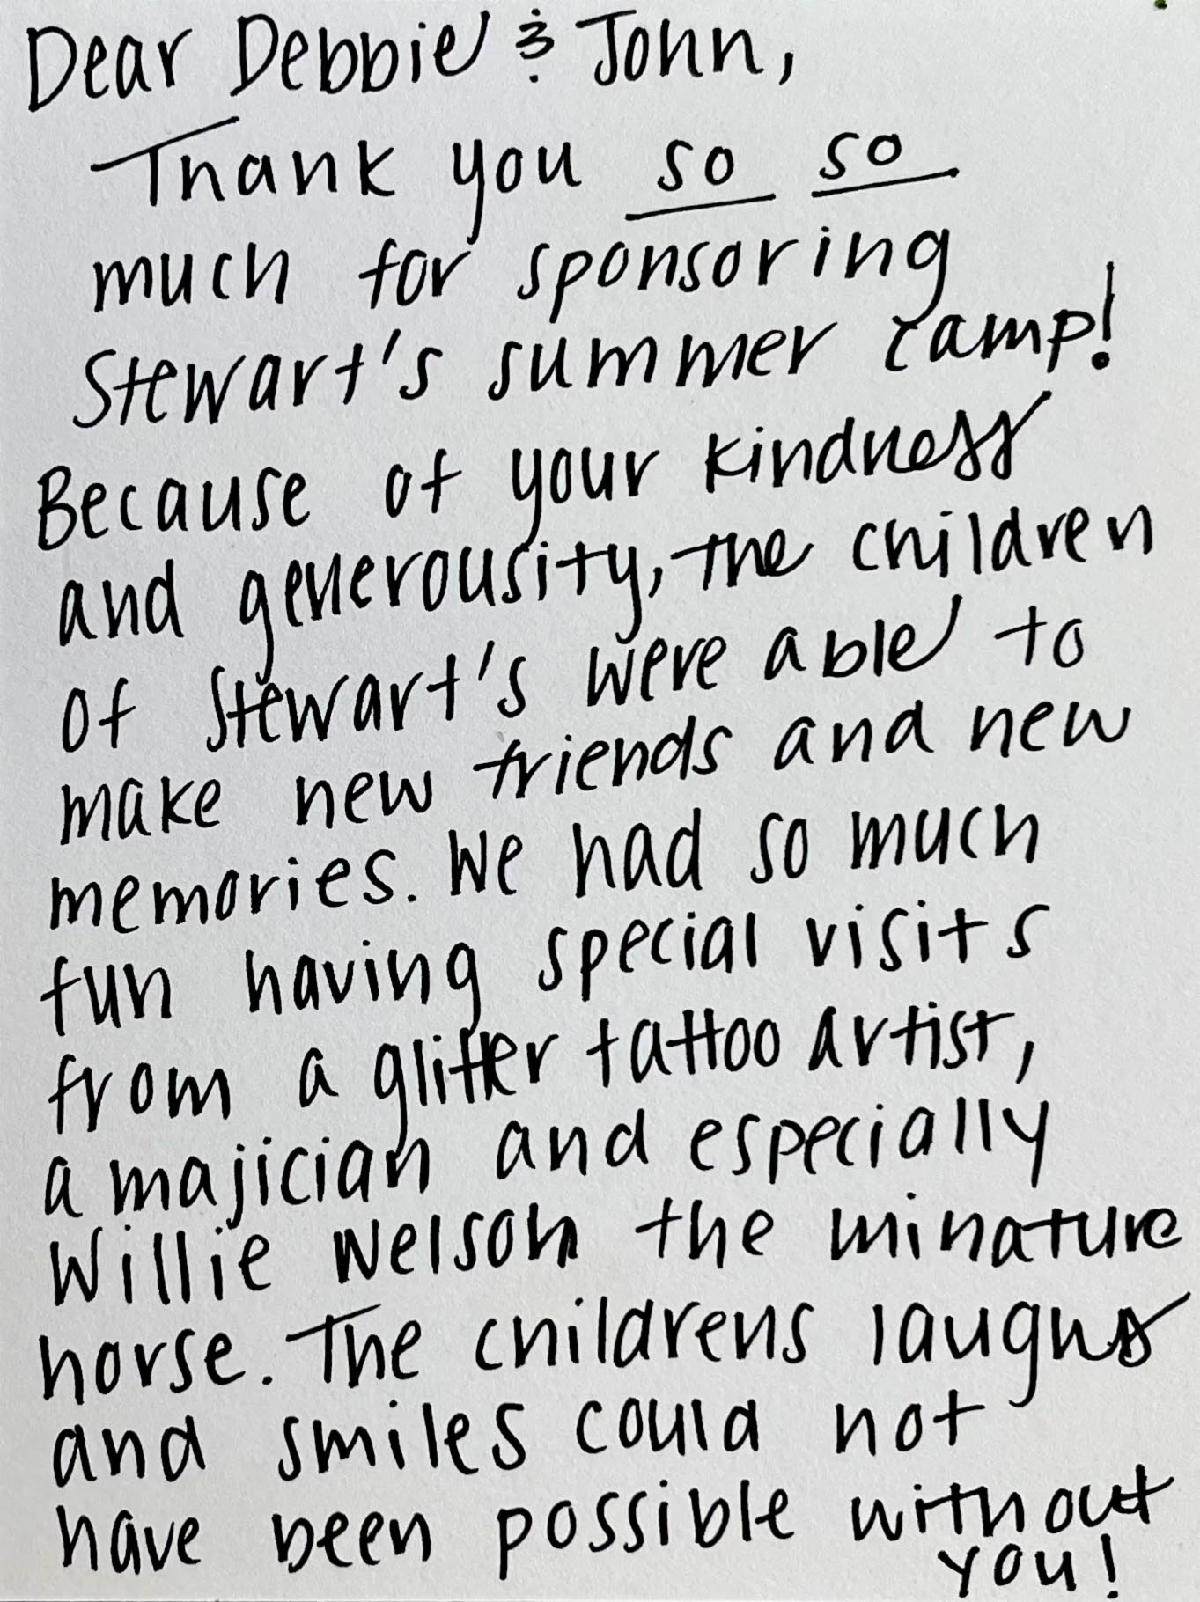 Dear Debbie & John,
Thank you so so
much for sponsoring
Stewart's summer camp!
Because of your kindness
and generousity, the children
of Stewart's were able to
make new friends and new
memories. We had so much
fun having special visits
from a glitter tattoo artist,
a majician and especially
Willie Nelson the minature
horse. The childrens laughs
and smiles could not
have been possible without
you!